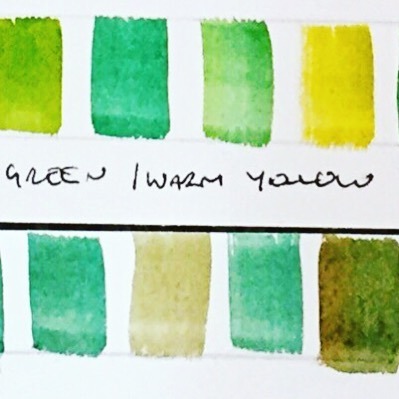 GREEN / WARM YELLOW